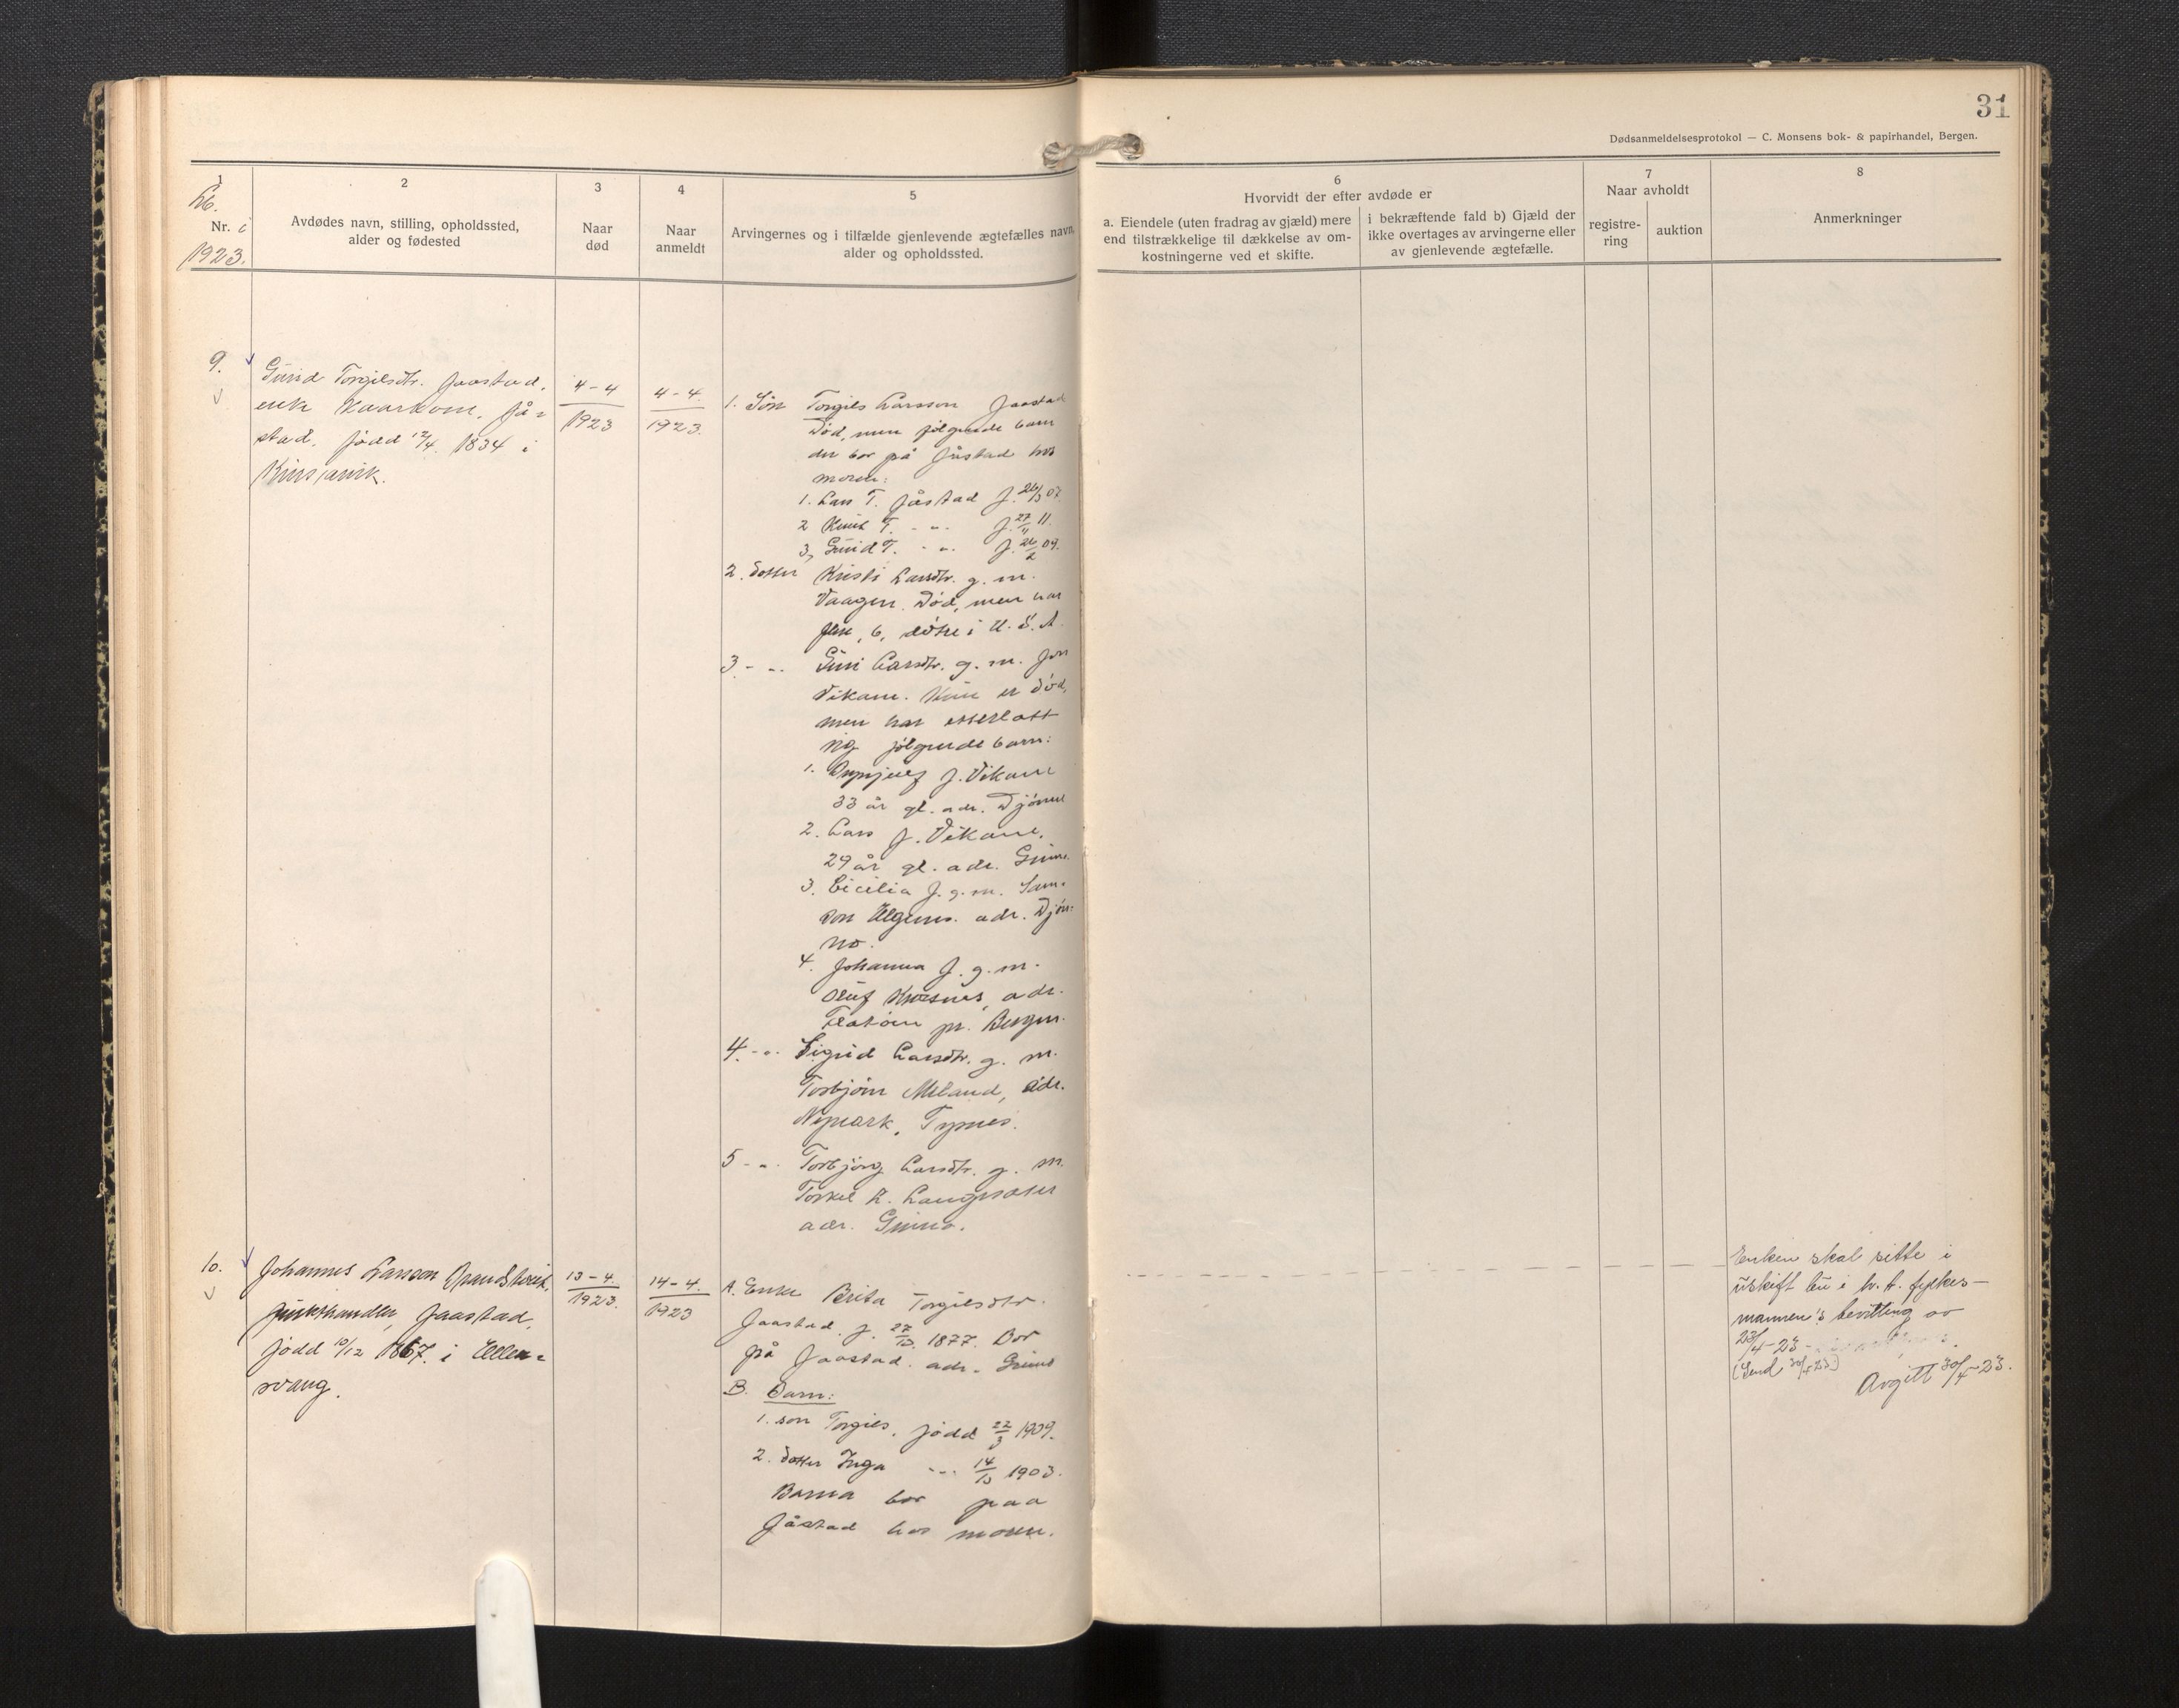 31
Dødsanmeldelsesprotokol — C. Monsens bok- & papirhandel, Bergen.
1
Lb.
Nr. i
1923.
2
Avdødes navn, stilling, opholdssted,
alder og fødested
3
Naar
død
4
Naar
anmeldt
5
Arvingernes og i tilfælde gjenlevende ægtefælles navn,
alder og opholdssted.
6
Hvorvidt der efter avdøde er
a. Eiendele (uten fradrag av gjæld) mere
end tilstrækkelige til dækkelse av om-
kostningerne ved et skifte.
i bekræftende fald b) Gjæld der
ikke overtages av arvingerne eller
av gjenlevende ægtefælle.
7
Naar avholdt
registre-
ring
auktion
8
Anmerkninger
9.
Gurid Torgilsdtr. Jaastad,
enke Kaarkone, Jå-
stad. født 12/4. 1834 i
Kinsarvik.
4-4
1923
4-4.
1923.
1. Søn Torgils Larsson Jaastad
Død, men følgende barn
der bor på Jåstad hos
moren:
1. Lars T. Jåstad f. 26/3 07.
2 Knut T. - " - f. 27/11 11.
3, Gurid T. - " - f. 26/2 09.
2. Dotter Kristi Larsdtr. g. m.
Vaagen. Død, men har
6, døtre i U. S. A.
3. - " - Guri Larsdtr. g. m. Jon
Vikane. Hun er død,
men har etterlatt
sig følgende barn:
1. J. Vikane
33 år gl. adr. Djønne
2. Lars J. Vikane,
29 år gl. adr. Grimo.
3. Cicilia J. g. m. Sam-
son adr. Djøn-
no.
4. Johanna J. g. m.
Oluf adr.
Flatøen pr. Bergen.
4. - " - Sigrid Larsdtr. g. m.
Torbjörn Meland, adr.
Nymark, Tysnes.
5 - " - Torbjørg Larsdtr. g. m.
Torkel L. Langesæter
adr. Grimo.
10.
Johannes Larsson
Jaastad,
född 10/12 1867. i Ullen-
svang.
13-4.
1923.
14-4.
1923
A. Enke Brita Torgilsdtr.
Jaastad f. 27/10 1877. Bor
på Jaastad. adr. Grimo
B. Barn:
1. son Torgils, född 22/3 1909.
2. Dotter Inga - " - 14/10 1903.
Barna bor paa
Jåstad hos moren.
Enken skal sitte i
uskift bu i h. t. fylkes-
mannen's bevilling av
23/4-23
(Send 30/4 23)
Avgitt 30/4-23.